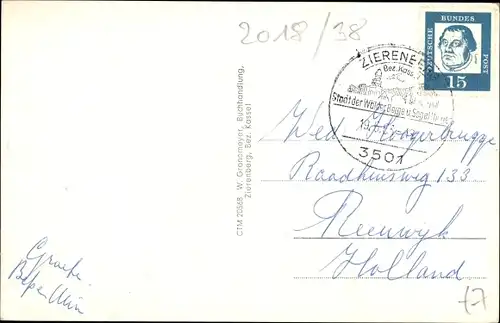 2018/38
DEUTSCHE BUNDESPOST
15
ZIERENBERG
Bez. Kassel
Stadt der Wälder, Berge u. Segelflieger
19.
3501
CTM 20568 W. Grandmeyer, Buchhandlung,
Zierenberg, Bez. Kassel
Wed. Hoogerbrugge
Raadhuisweg 133
Reeuwijk
Holland